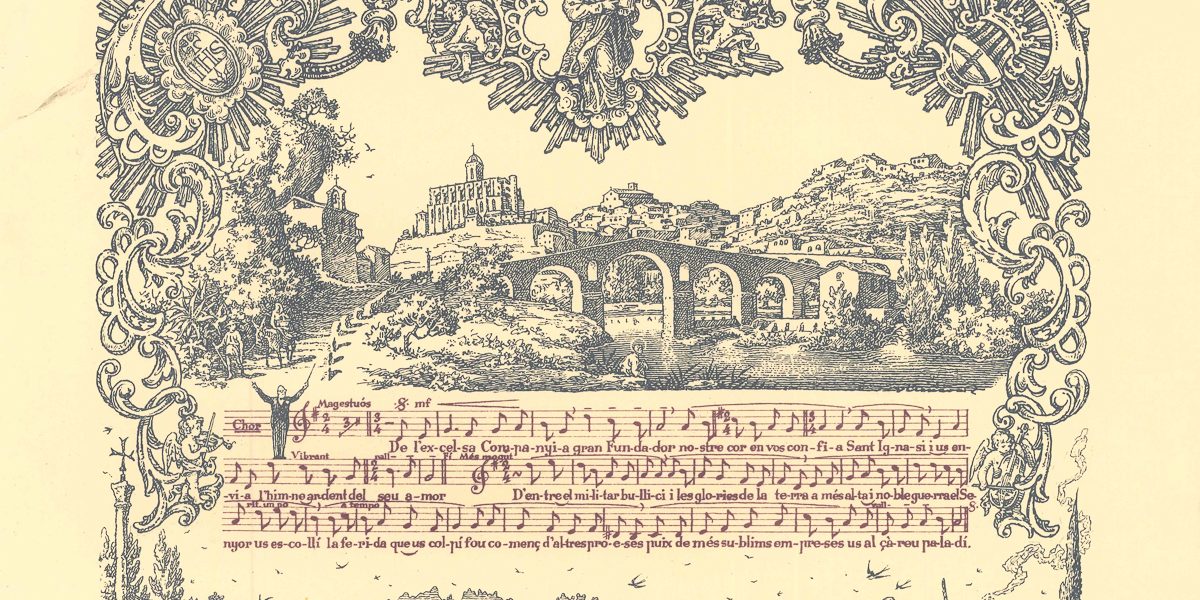 IHS
Magestuós mf
Chor
De l'ex-cel-sa Com-pa-nyi-a gran Fun-da-dor no-stre cor en vos con-fi-a Sant Ig-na-si i us en-
Vibrant rall Més mogut
-vi-a l'him-ne ardent del seu a-mor D'en-tre el mi-li-tar bu-lli-ci i les glo-ries de la te-rra a més al-ta i no-ble gue-rra el Se-
rit. un po a tempo rall-
nyor us es-co-llí la fe-ri-da que us col-pí fou co-menç d'al-tres pro-e-ses puix de més su-blims em-pre-ses us al çà-reu pa-la-dí.